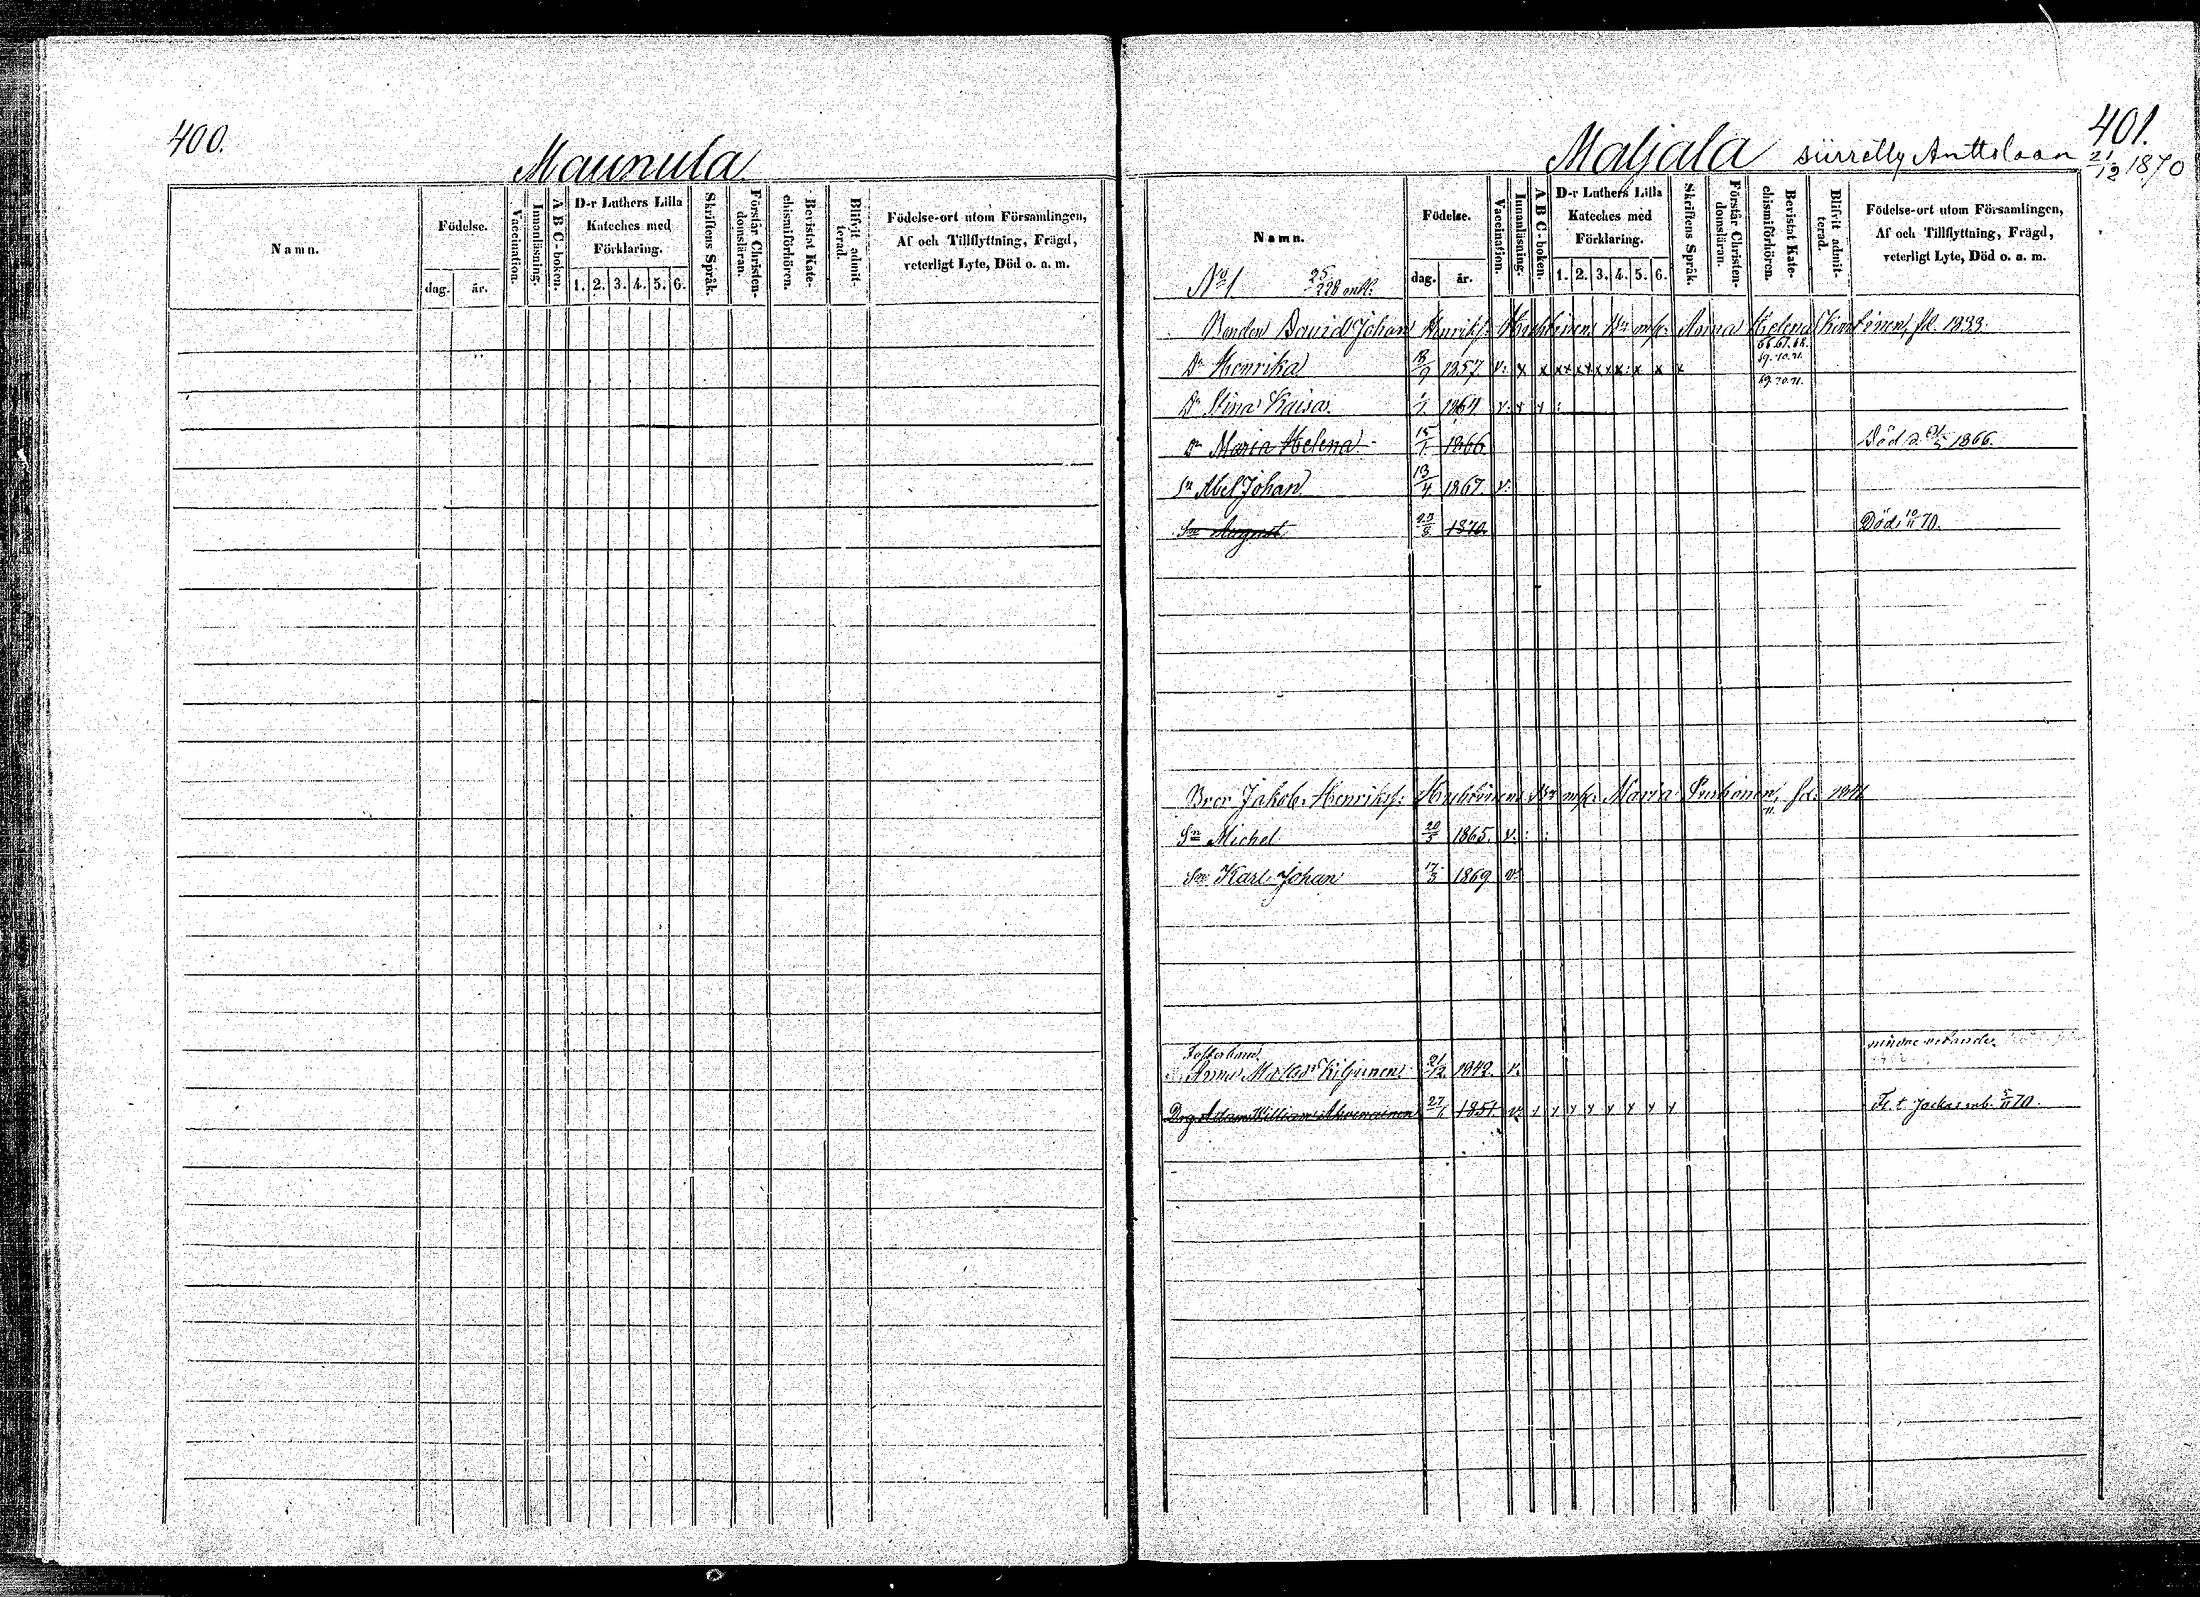 400.
Maunula
Namn.
Födelse.
dag.
år.
Vaccination.
Innanläsning.
A B C-boken.
D-r Luthers Lilla
Kateches med
Förklaring.
1. 2. 3. 4. 5. 6.
Skriftens Språk.
Förstår Christen-
domsläran.
Bevistat Kate-
chismiförhören.
Blifvit admit-
terad.
Födelse-ort utom Församlingen,
Af och Tillflyttning, Frägd,
veterligt Lyte, Död o. a. m.
401.
Maljala siirretty Anttolaan 21/12 1870
Namn.
Födelse.
dag.
år.
Vaccination.
Innanläsning.
A B C-boken.
D-r Luthers Lilla
Kateches med
Förklaring.
1. 2. 3. 4. 5. 6.
Skriftens Språk.
Förstår Christen-
domsläran.
Bevistat Kate-
chismiförhören.
Blifvit admit-
terad.
Födelse-ort utom Församlingen,
Af och Tillflyttning, Frägd,
veterligt Lyte, Död o. a. m.
No 1 25/228
Bonden David Johan Henrikss: Helena fd. 1833.
66. 67. 68.
69. 70. 71.
Dr Henrika 18/9 1857. v: x x xx xx xx x: x x x
69. 70. 71.
Dr Stina Kaisa 1864 v. x x :
Dr Maria Helena 15/1 1866 Död d. 1866.
Sn Abel Johan 13/4 1867. v:
Sn August 23/8 1870. Död 10/11 70.
Bror Jakob Henrikss: Maria fd:
Sn Michel 20/5 1865. v: : :
Sn Karl Johan 17/3 1869 v:
Fosterbarn
Anna 21/2 1842. v.
Drg Adam William 27/1 1851 v: x x x x x x x x Fl. t. Jockas 70.